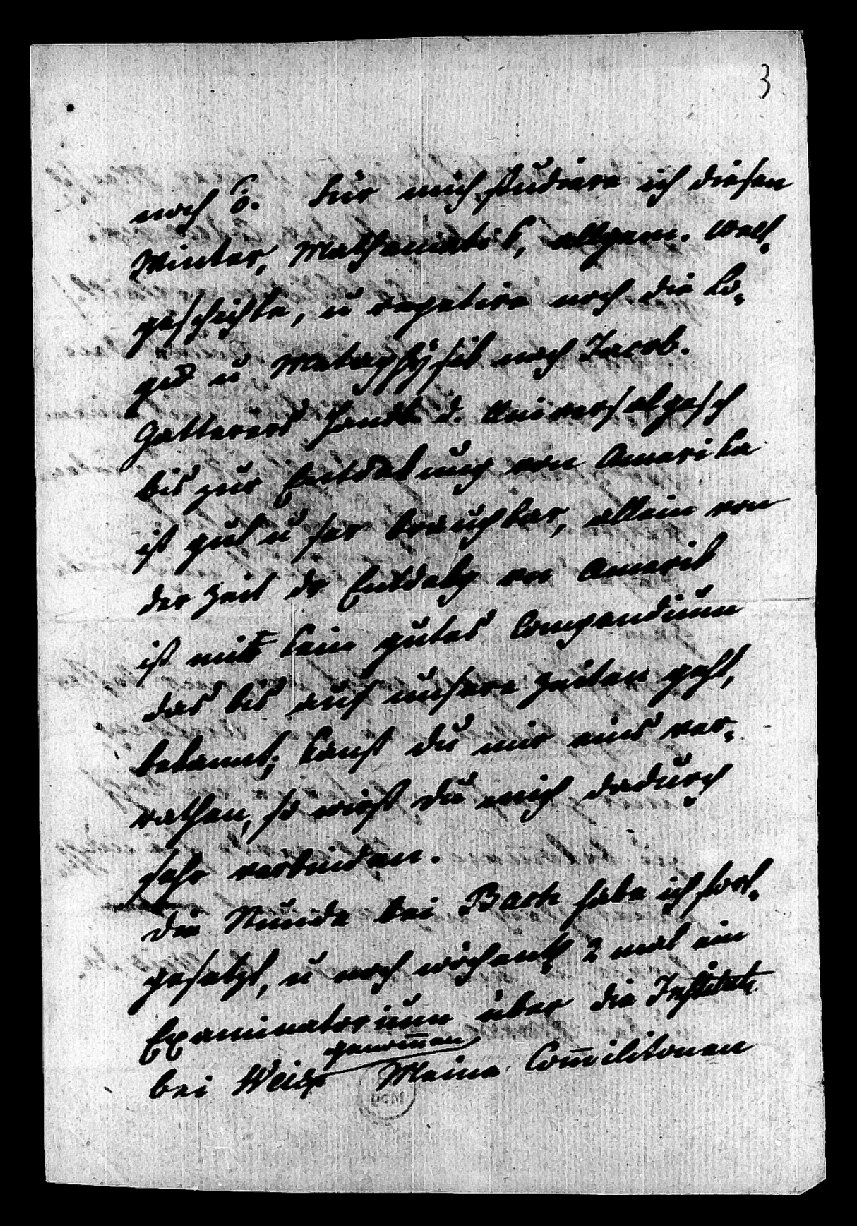 3
noch 6. Für mich studiere ich diesen
Winter, Mathematik, allgem. Welt-
geschichte, u repetire noch die Lo-
gik u Metaphÿsik nach Jacob.
Gatterers Handb d. Universalgesch
bis zur Entdekung von Amerika
ist gut u ser brauchbar, allein von
der Zeit der Entdekg von Amerik
ist mir kein gutes Compendium
das bis auf unsere Zeiten geht,
bekannt; kanst du mir eins ver-
rathen, so wirst du mich dadurch
sehr verbinden.
Die Stunde bei Bach habe ich fort-
gesetzt, u noch wöchentl 2 mal ein
Examinatorium über die Institut
genom̅en
bei Weis Meine Com̅ilitonen